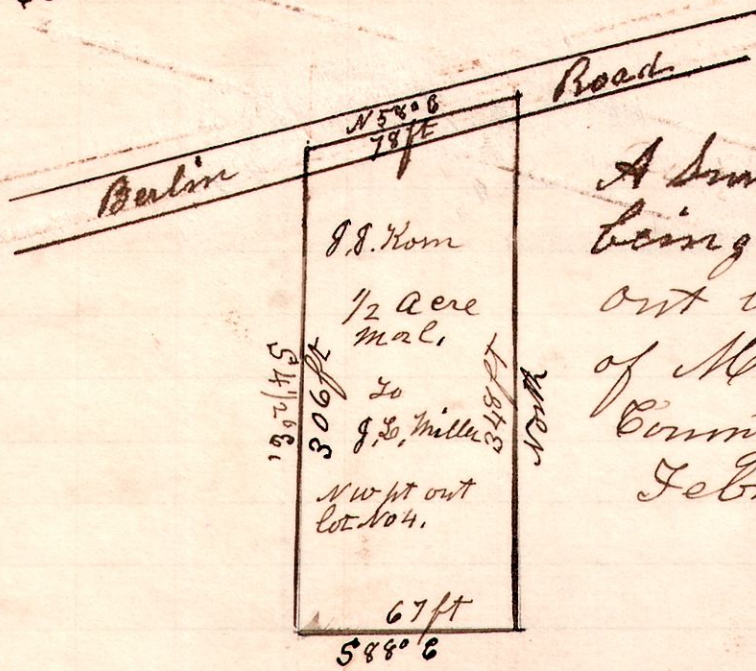 Berlin Road
N 58° E
78 ft
J.J. Korn
1/2 Acre
mol.
To
J, L, Miller
N W pt out
lot No 4.
306 ft
348 ft
North
67 ft
S 88° E
A
being
out
of M
Feb